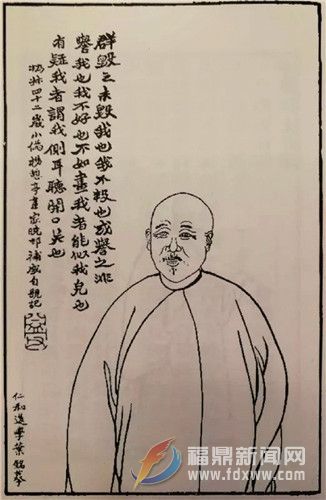 群毀之未毀我也我不報也或譽之非
譽我也我不好也不如畫我者能似我皃也
有疑我者謂我側耳聽開口笑也
四十二歲小像楊憩亭畫家曉邨補自題記
仁和逸學葉銘摹
福鼎新闻网
www.fdxww.com